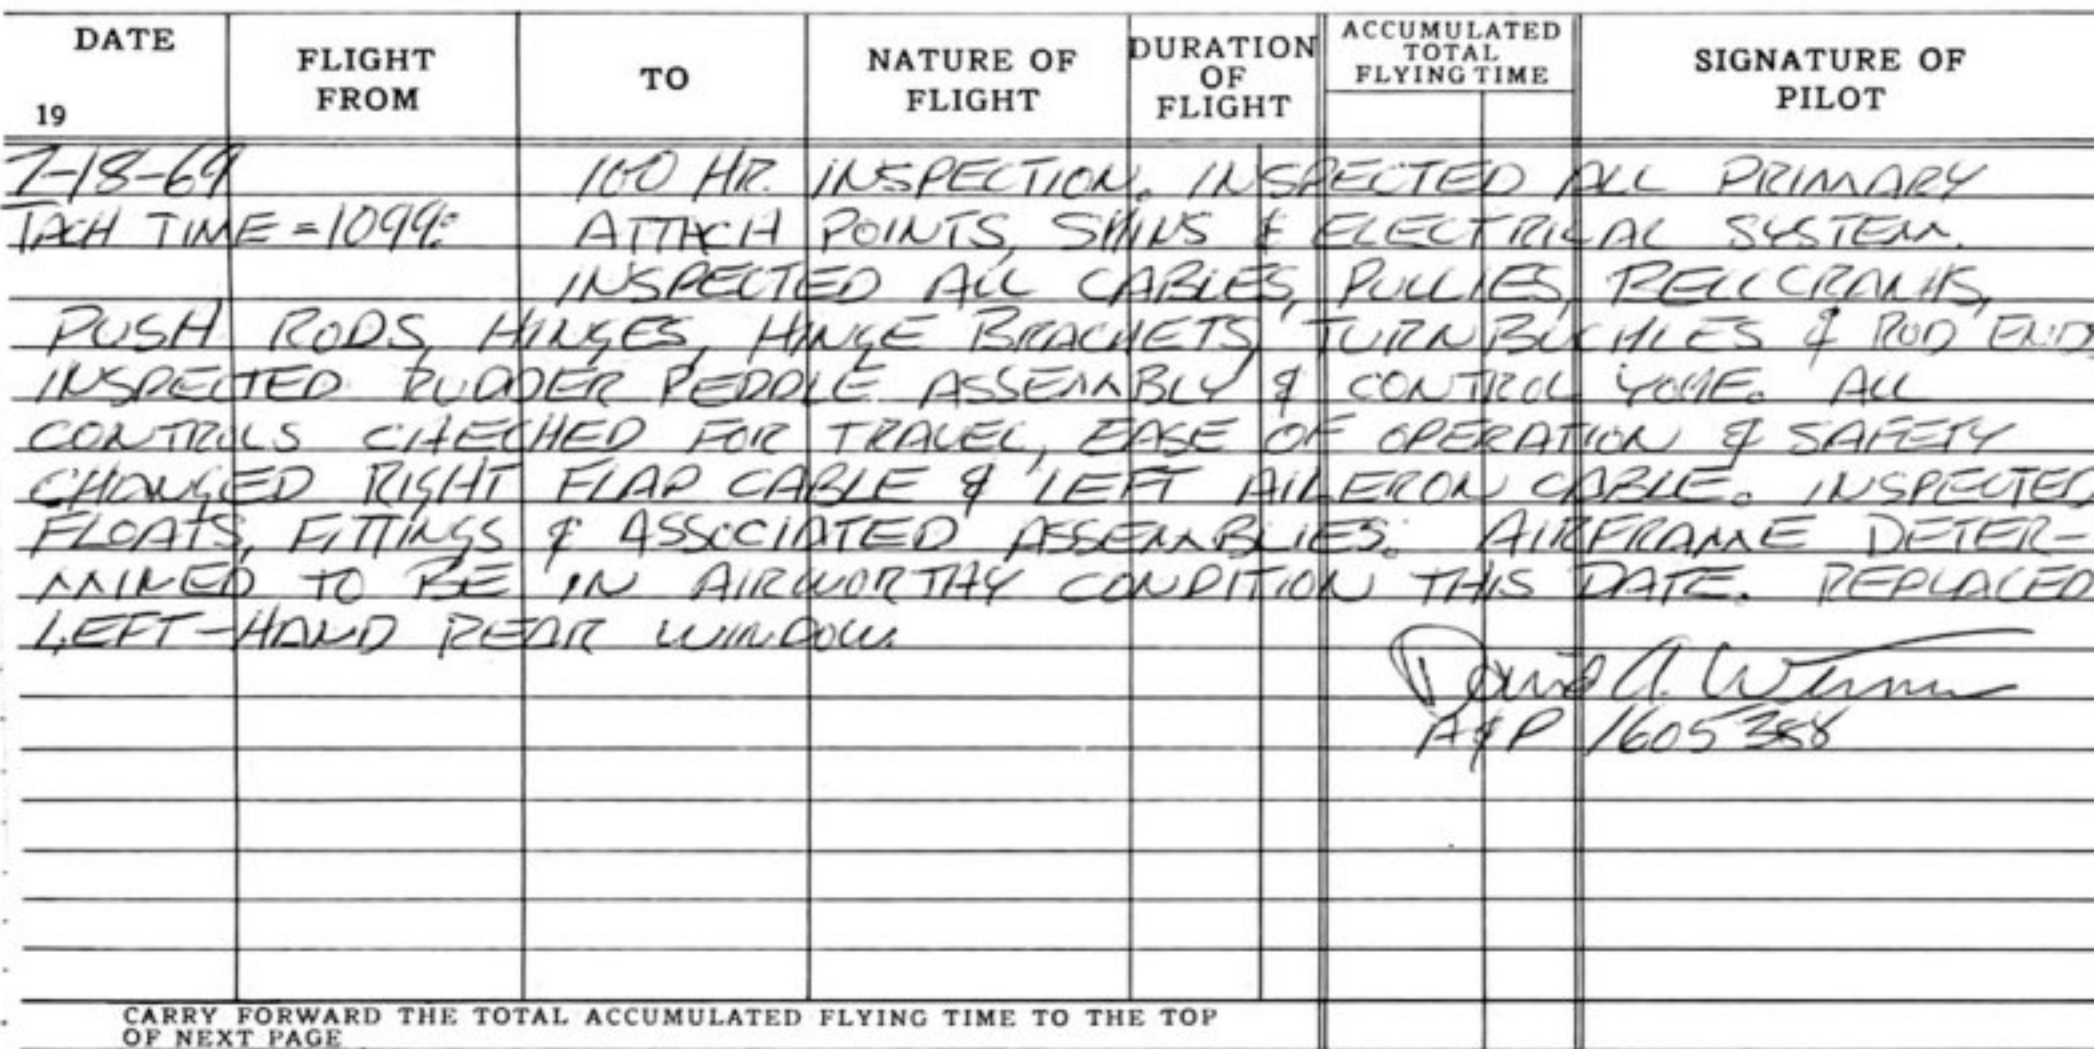 DATE
19
FLIGHT
FROM
TO
NATURE OF
FLIGHT
DURATION
OF
FLIGHT
ACCUMULATED
TOTAL
FLYING TIME
SIGNATURE OF
PILOT
7-18-69 100 HR. INSPECTION. INSPECTED ALL PRIMARY
TACH TIME = 1099: ATTACH POINTS, SKINS & ELECTRICAL SYSTEM.
INSPECTED ALL CABLES, PULLIES, BELLCRANKS,
PUSH RODS, HINGES, HINGE BRACKETS, TURNBUCKLES & ROD ENDS
INSPECTED RUDDER PEDDLE ASSEMBLY & CONTROL YOKE. ALL
CONTROLS CHECKED FOR TRAVEL, EASE OF OPERATION & SAFETY
CHANGED RIGHT FLAP CABLE & LEFT AILERON CABLE. INSPECTED
FLOATS, FITTINGS & ASSOCIATED ASSEMBLIES. AIRFRAME DETER-
MINED TO BE IN AIRWORTHY CONDITION THIS DATE. REPLACED
LEFT-HAND REAR WINDOW.
David A.
A&P 1605388
CARRY FORWARD THE TOTAL ACCUMULATED FLYING TIME TO THE TOP
OF NEXT PAGE